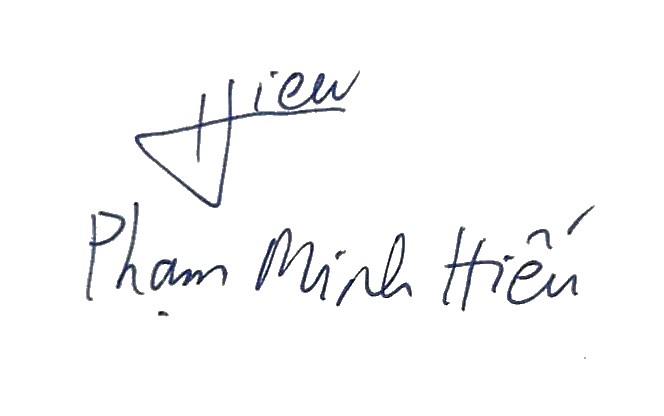 Hieu
Phạm Minh Hiếu